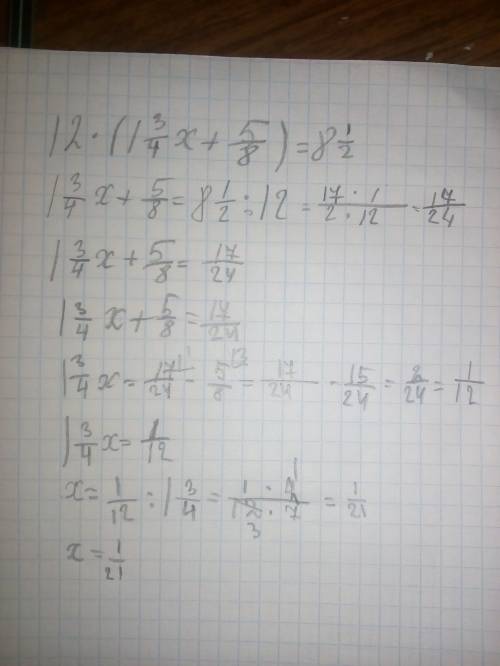 12 · (1 3/4 x + 5/8) = 8 1/2
1 3/4 x + 5/8 = 8 1/2 : 12 = 17 · 1 / 2 · 12 = 17/24
1 3/4 x + 5/8 = 17/24
1 3/4 x + 5/8 = 17/24
1 3/4 x = 17/24 - 5/8 = 17/24 - 15/24 = 2/24 = 1/12
1 3/4 x = 1/12
x = 1/12 : 1 3/4 = 1 · 4 / 12 · 7 = 1/21
x = 1/21